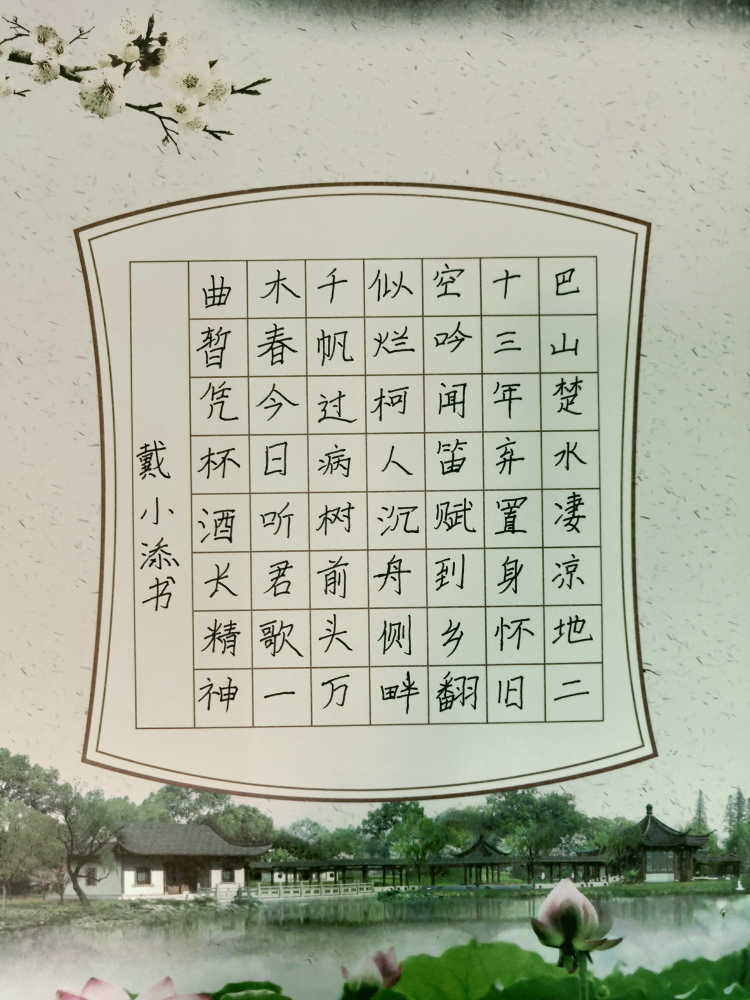 巴山楚水凄凉地二
十三年弃置身怀旧
空吟闻笛赋到乡翻
似烂柯人沉舟侧畔
千帆过病树前头万
木春今日听君歌一
曲暂凭杯酒长精神
戴小添书